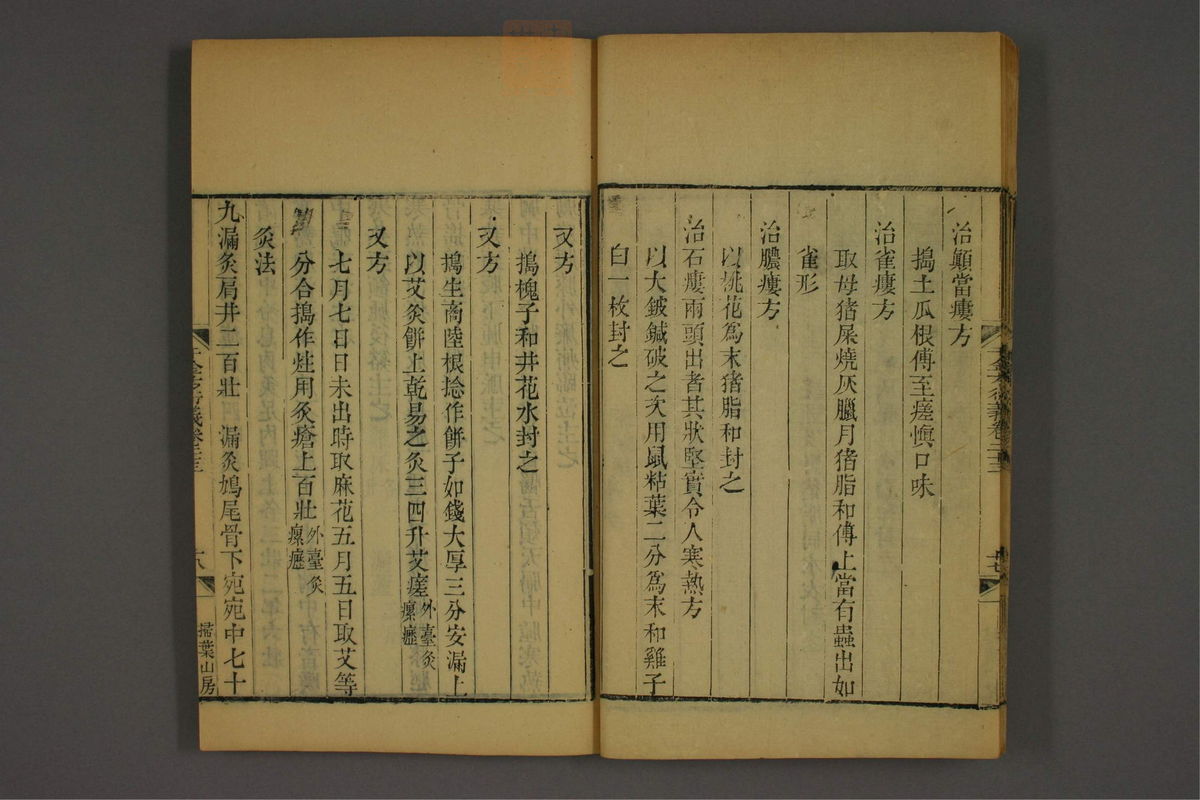 治顚當瘻方
搗土瓜根傅至瘥愼口味
治雀瘻方
取母猪屎燒灰臘月猪脂和傅上當有蟲出如
雀形
治膿瘻方
以桃花爲末猪脂和封之
治石瘻兩頭出者其狀堅實令人寒熱方
以大鈹鍼破之次用鼠粘葉二分爲末和雞子
白一枚封之
又方
搗槐子和井花水封之
又方
搗生商陸根捻作餠子如錢大厚三分安漏上
以艾灸餠上乾易之灸三四升艾瘥外臺灸瘰癧
又方
七月七日日未出時取麻花五月五日取艾等
分合搗作炷用灸瘡上百壯外臺灸瘰癧
灸法
九漏灸肩井二百壯 漏灸鳩尾骨下宛宛中七十
千金方衍義卷二十三
十八
掃葉山房